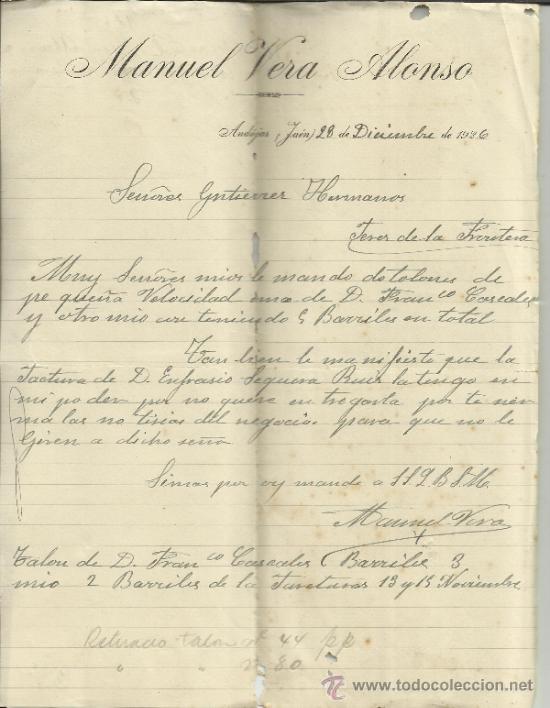 Manuel Vera Alonso
Andújar (Jaén) 28 de Diciembre de 1926
Señores Gutierrez Hermanos
Jerez de la Frontera
Muy Señores mios le mando dos talones de
pequeña Velocidad uno de D. Franco Cascales
y otro mio con teniendo 5 Barriles en total
Tan bien le manifiesto que la
Factura de D. Eufrasio Seguera Ruiz la tengo en
mi poder por no querer en tregarla por te ner
ma las no tisias del negocio. para que no le
Giren a dicho señor
Sinmas por oy mande a S S Q B S M
Manuel Vera
Talon de D. Franco Casceales Barriles 3
mio 2 Barriles de la Facturas 13 y 15 Noviembre
Retirado talon nº 44 p p
" " nº 80
www.todocoleccion.net